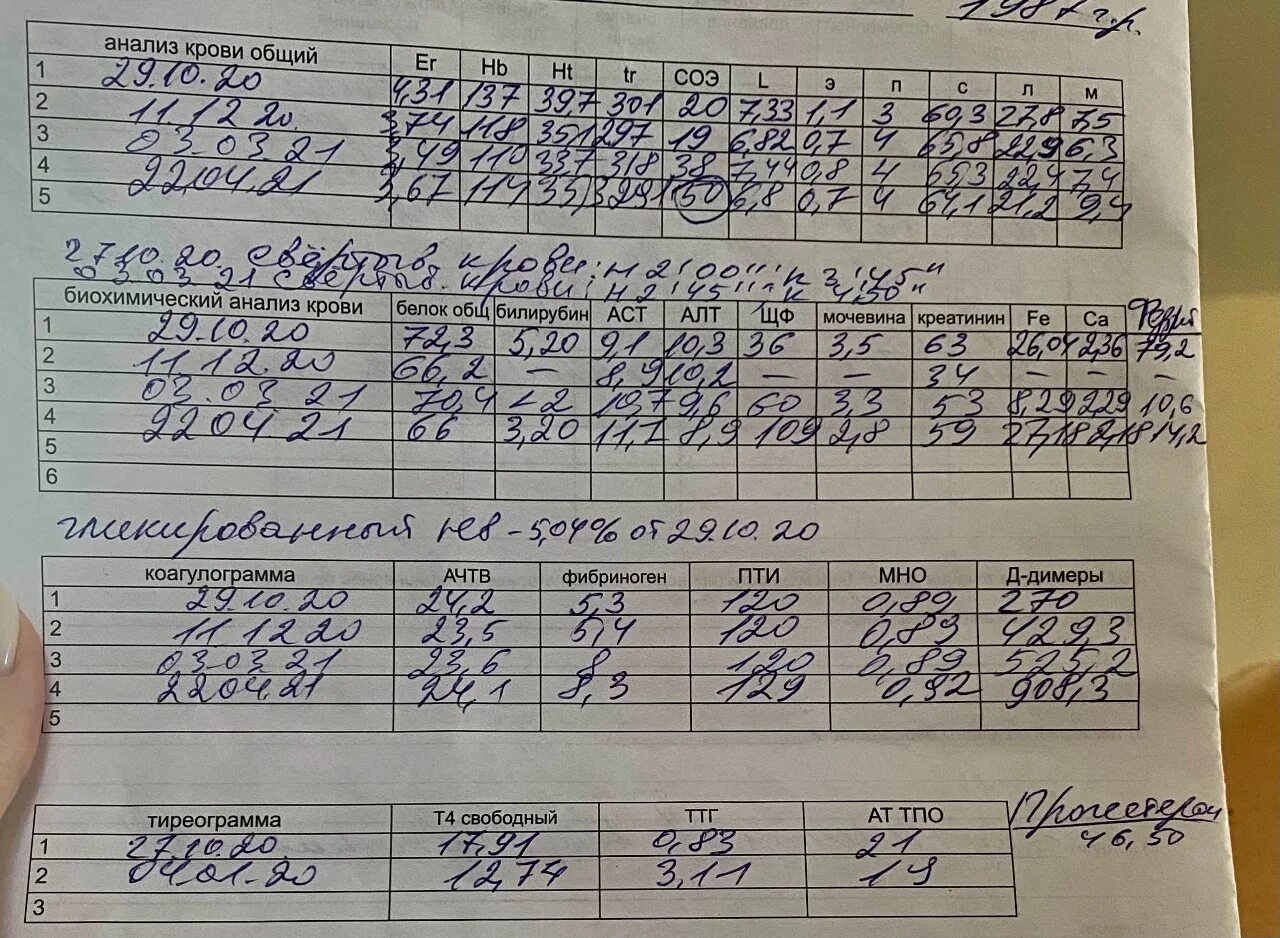 1987 г.р.
анализ крови общий Er Hb Ht tr СОЭ L э п с л м
1 29.10.20 4,31 137 39,7 301 20 7,33 1,1 3 60,3 27,8 7,5
2 11.12.20. 3,74 118 35,1 297 19 6,82 0,7 4 65,8 22,9 6,3
3 03.03.21 3,49 110 33,7 318 38 7,44 0,8 4 65,3 22,4 7,4
4 22.04.21 3,67 114 291 50 6,8 0,7 4 64,1 21,2 9,4
5
27.10.20. свёртыв. крови: н 2'00'' к 3'45"
03.03.21 свёртыв. крови: н 2'45'' - к 4'30"
биохимический анализ крови белок общ билирубин АСТ АЛТ ЩФ мочевина креатинин Fe Ca
1 29.10.20 72,3 5,20 9,1 10,3 36 3,5 63 26,04 2,36 79,2
2 11.12.20 66,2 — 8,9 10,2 — — 34 — — —
3 03.03.21 70,4 <2 10,7 9,6 60 3,3 53 8,29 2,29 10,6
4 22.04.21 66 3,20 11,1 8,9 109 2,8 59 27,18 2,18 14,2
5
6
гликированный Hb - 5,04% от 29.10.20
коагулограмма АЧТВ фибриноген ПТИ МНО Д-димеры
1 29.10.20 24,2 5,3 120 0,89 270
2 11.12.20 23,5 5,4 120 0,89 429,3
3 03.03.21 23,6 8 120 0,89 525,2
4 22.04.21 24,1 8,3 129 0,92 908,3
5
тиреограмма Т4 свободный ТТГ АТ ТПО Прогестерон
1 27.10.20. 17,91 0,83 21 46,50
2 04.01.20 12,74 3,11 19
3